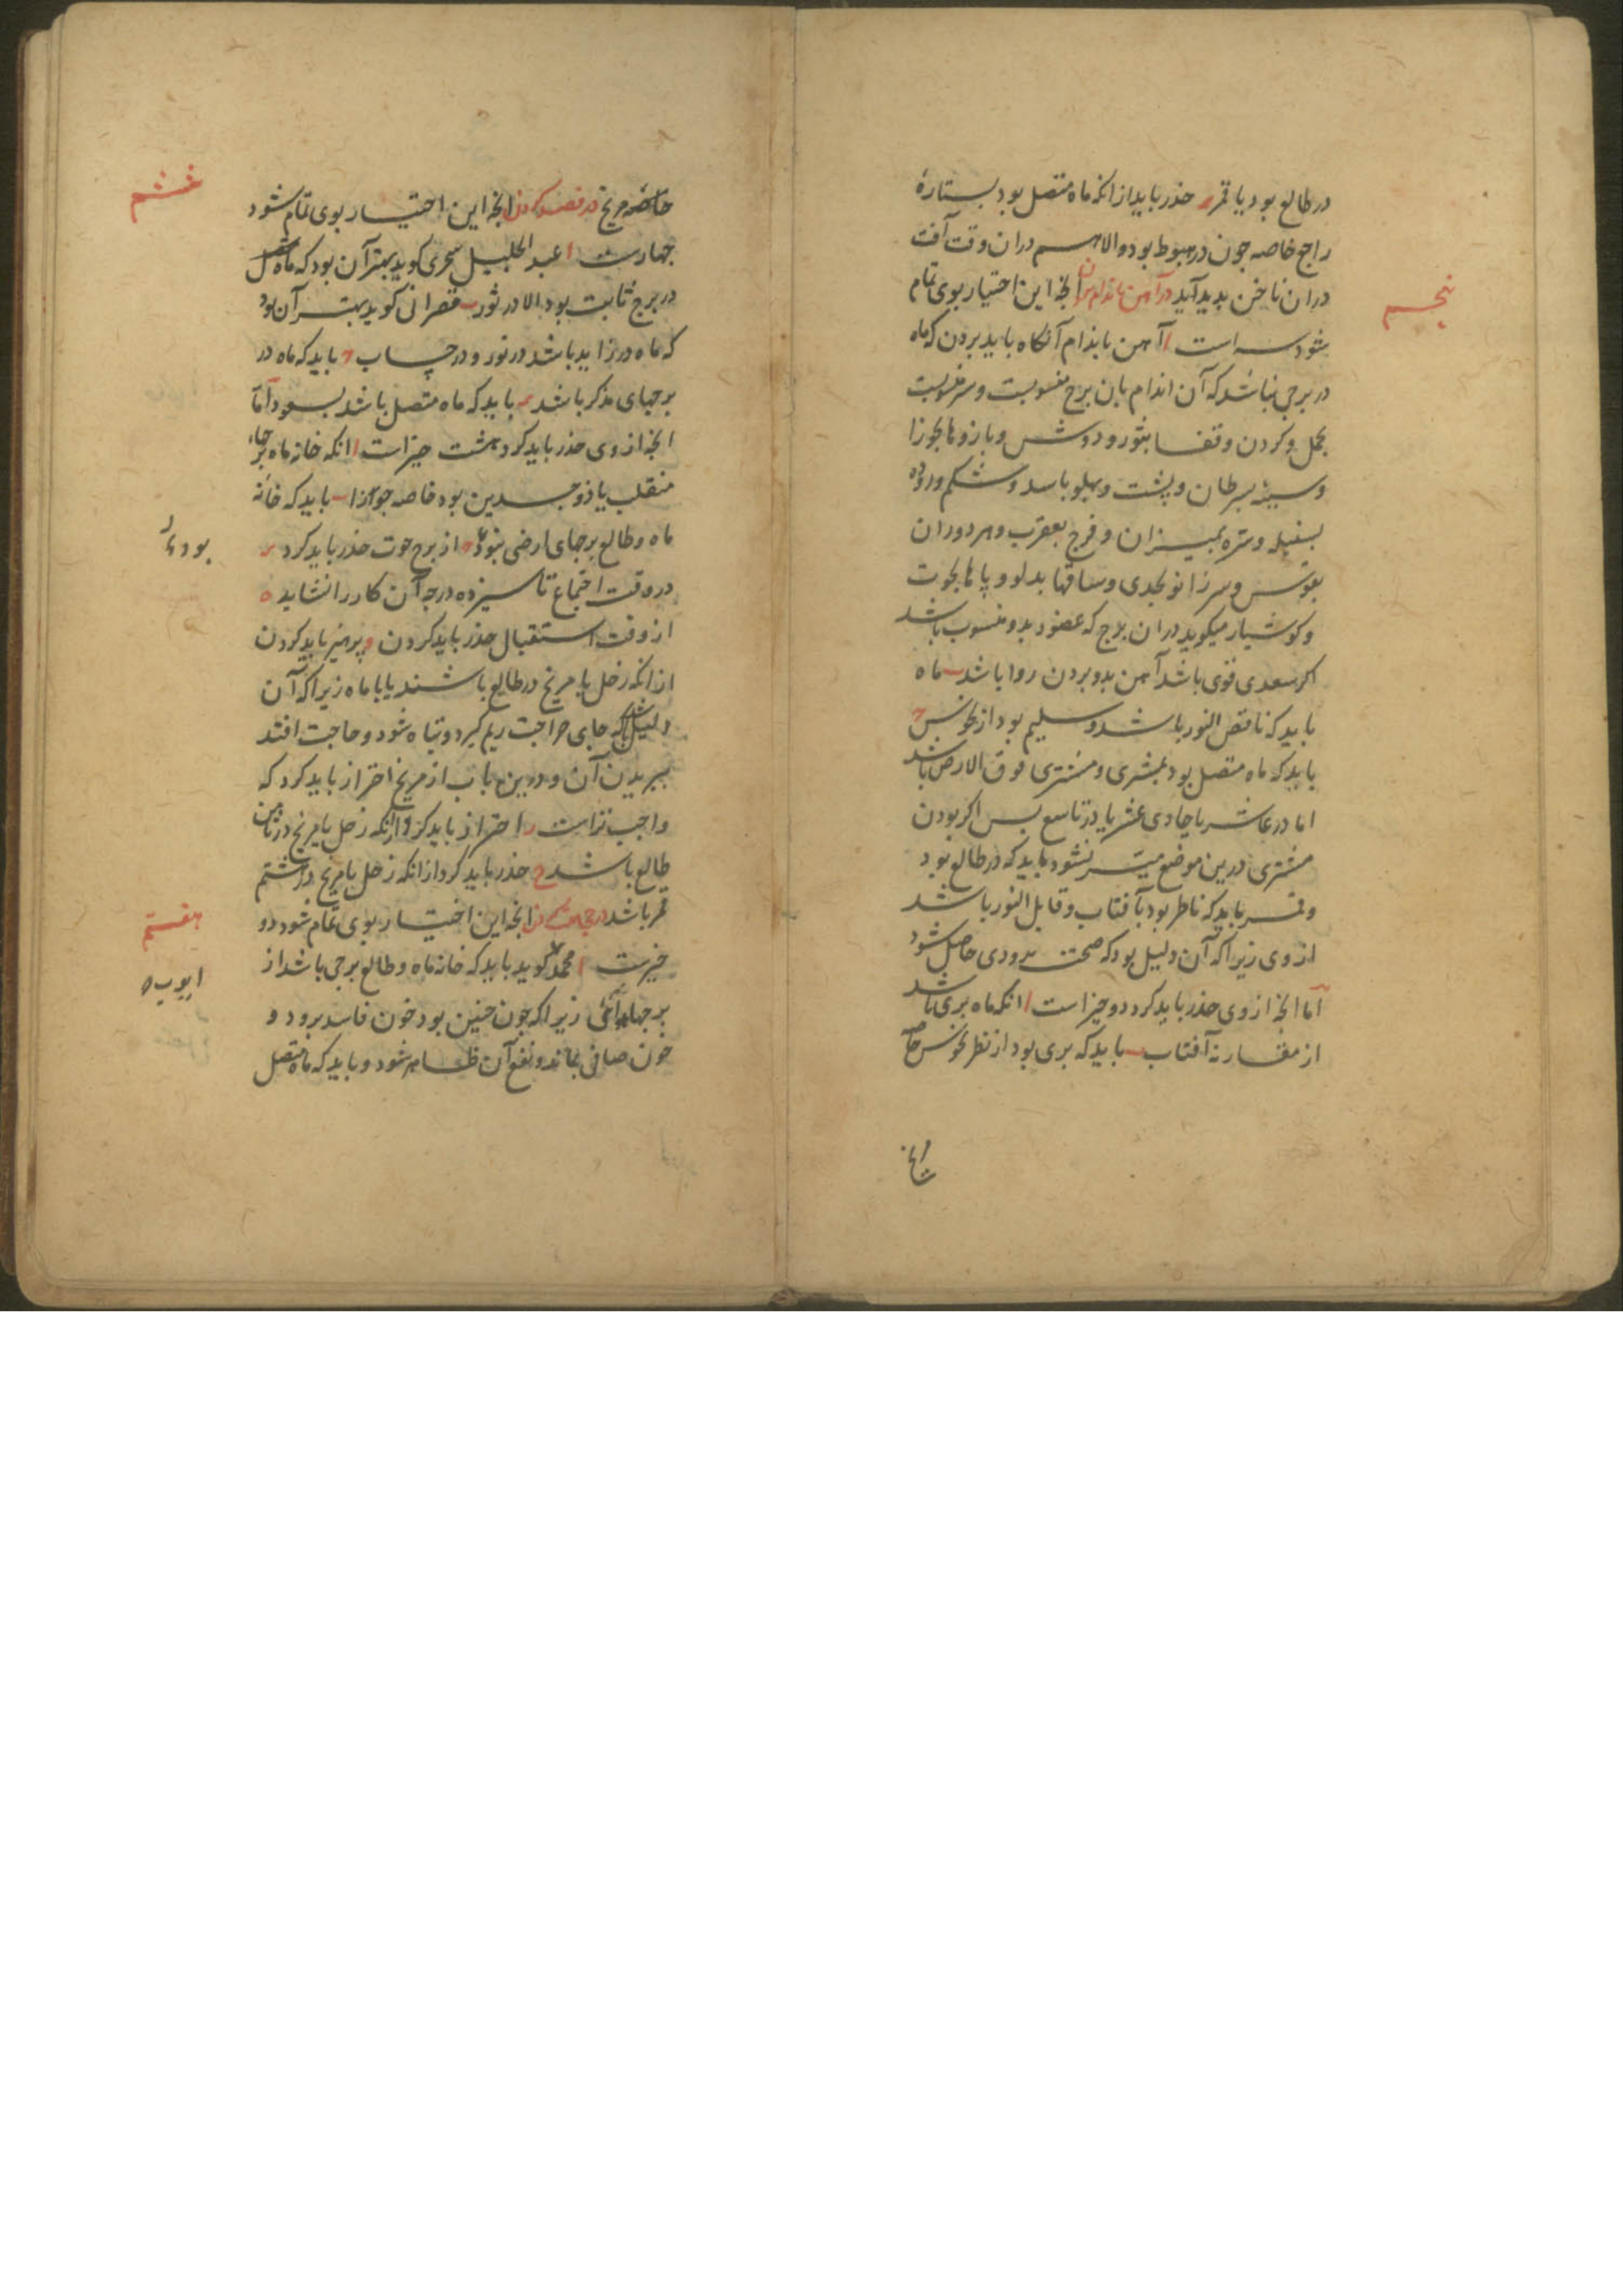 در طالع بود یا قمر د حذر باید از انکه ماه متصل بود بستارهٔ
راجع خاصه چون در هبوط بود والا هم دران وقت آفت
دران ناخن بدید آید در آهن باندام بردن انچه این اختیار بوی تمام
پنجم
شود سه است ا آهن باندام آنگاه باید بردن که ماه
در برجی نباشد که آن اندام بان برج منسوبست و سر منسوبست
بحمل و کردن و قفا بثور و دوش و بازوها بجوزا
و سینه بسرطان و پشت و پهلو باسد و شکم و روده
بسنبله و سره بمیزان و فرج بعقرب و هر دو ران
بقوس و سر زانو بجدی و ساقها بدلو و پایها بحوت
و کوشیار میکوید دران برج که عضو بدو منسوب باشد
اکر سعدی قوی باشد آهن بدو بردن روا باشد ب ماه
باید که ناقص النور باشد و سلیم بود از نحوس ج
باید که ماه متصل بود بمشتری و مشتری فوق الارض باشد
اما در عاشر یا حادی عشر یا در تاسع بس اکر بودن
مشتری درین موضع میسر نشود باید که در طالع بود
و قمر باید که ناظر بود بآفتاب و قابل النور باشد
از وی زیرا که آن دلیل بود که صحت بزودی حاصل شود
اما انچه از وی حذر باید کرد دو چیز است ا انکه ماه بری باشد
از مقارنهٔ آفتاب ب باید که بری بود از نظر نحوس خاصه
خاصه مریخ در فصد کردن انچه این اختیار بوی تمام شود
ششم
چهارست ا عبد الجلیل سجزی کوید بهتر آن بود که ماه متصل
در برج ثابت بود الا در ثور ب قصرانی کوید بهتر آن بود
که ماه در زاید باشد در نور و در حساب ج باید که ماه در
برجهای مذکر باشد د باید که ماه متصل باشد بسعود اما
انچه از وی حذر باید کرد هشت چیز است ا انکه خانه ماه برجهاء
منقلب یا ذو جسدین بود خاصه جوزا ب باید که خانه
ماه و طالع برجهای ارضی نبود ج از برج حوت حذر باید کرد د
در وقت اجتماع تا سیزده درجه آن کار را نشاید ه
از وقت استقبال حذر باید کردن و پرهیز باید کردن
از انکه زحل با مریخ در طالع باشند یا با ماه زیرا که آن
دلیل باشد که جای جراحت ریم کیرد و تباه شود و حاجت افتد
ببریدن آن و درین باب از مریخ احتراز باید کرد که
واجب تر است ز احتراز باید کرد از انکه زحل یا مریخ در ثامن
طالع باشد ح حذر باید کرد از انکه زحل یا مریخ در هشتم
قمر باشد در حجامت کردن انچه این اختیار بوی تمام شود دو
هفتم
چیزست ا محمد کوید باید که خانه ماه و طالع برجی باشد از
ایوب
برجهاء آتشی زیرا که چون چنین بود خون فاسد برود و
خون صافی بماند و نفع آن ظاهر شود و باید که ماه متصل